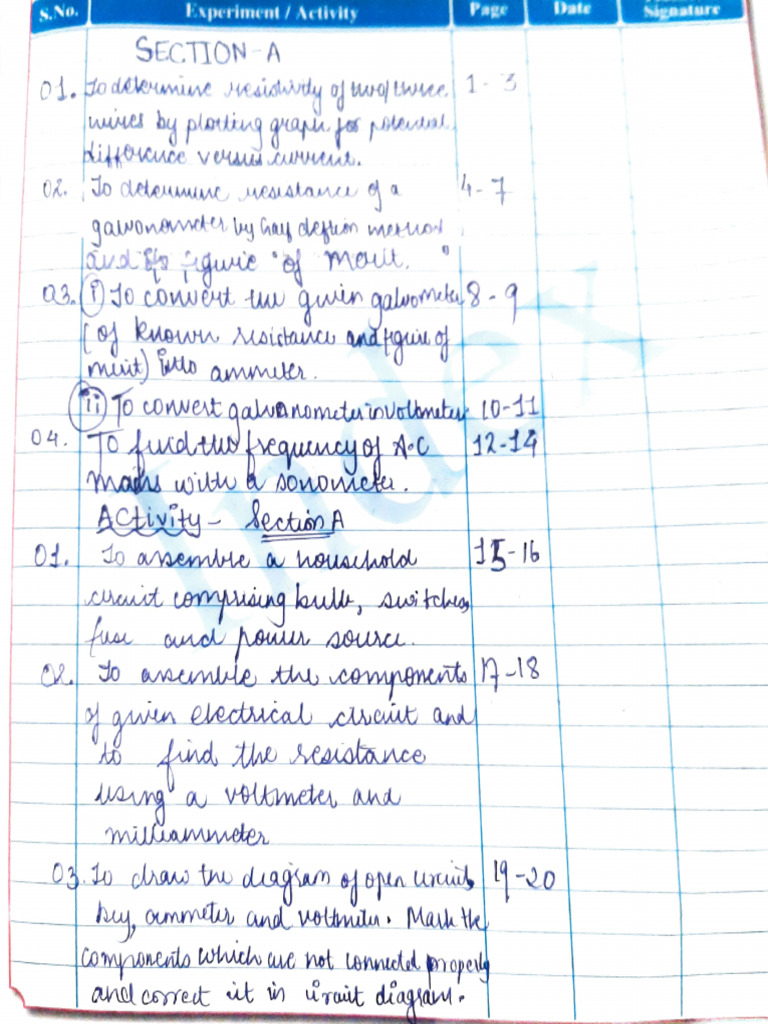 S.No. Experiment / Activity Page Date Signature
SECTION-A
01. To determine resistivity of two/three 1-3
wires by plotting graph for potential
difference versus current.
02. To determine resistance of a 4-7
galvonometer by half deftion method
and its figure of merit.
03. (i) To convert the given galvometer 8-9
(of known resistance and figure of
merit) into ammeter.
(ii) To convert galvanometer in voltmeter 10-11
04. To find the frequency of A.C 12-14
mains with a sonometer.
Activity - Section A
01. To assemble a household 15-16
circuit comprising bulb, switches,
fuse and power source.
02. To assemble the components 17-18
of given electrical circuit and
to find the resistance
using a voltmeter and
milliammeter
03. To draw the diagram of open circuit 19-20
key, ammeter and voltmeter. Mark the
components which are not connected properly
and correct it in circuit diagram.
Index